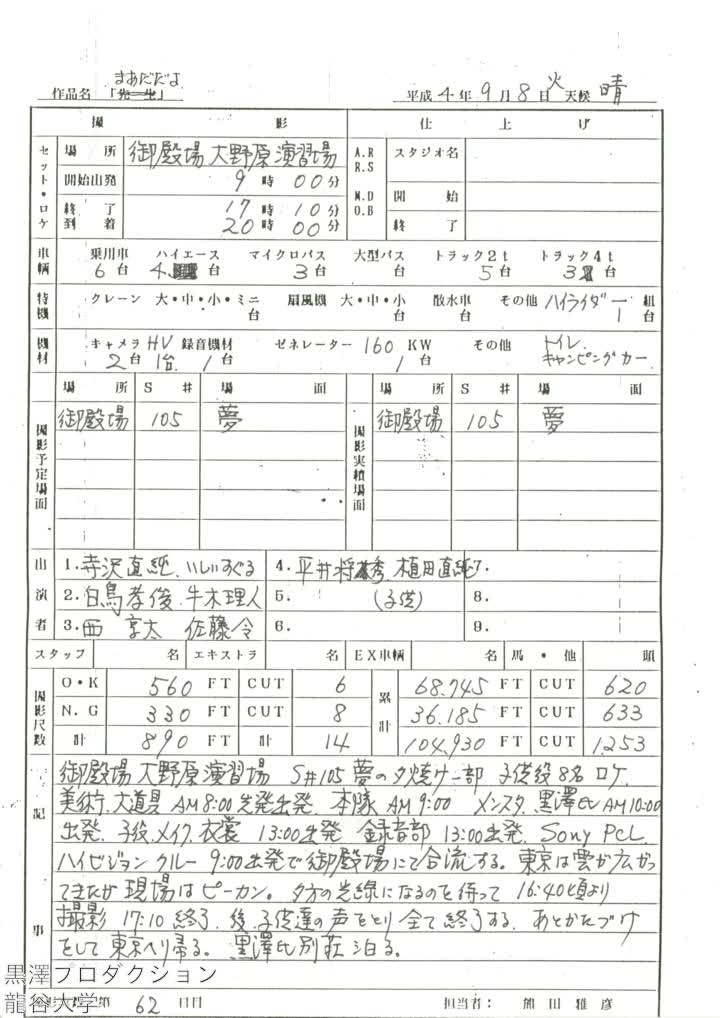 まあだだよ
作品名 「先生」 平成 4 年 9 月 8 日 火 天候 晴
撮 影 仕 上 げ
セット・ロケ 場 所 御殿場 大野原演習場 A.R R.S スタジオ名
開始出発 9 時 00 分 M.D O.B 開 始
終 了 17 時 10 分 終 了
到 着 20 時 00 分
車輌 乗用車 ハイエース マイクロバス 大型バス トラック2t トラック4t
6 台 4 台 3 台 台 5 台 3 台
特機 クレーン 大・中・小・ミニ 扇風機 大・中・小 散水車 その他 ハイライダー 組
台 台 台 1 台
機材 キャメラ HV 録音機材 ゼネレーター 160 KW その他 トイレ
2 台 1台. 1 台 1 台 キャンピングカー
場 所 S # 場 面 場 所 S # 場 面
撮影予定場面 御殿場 105 夢 撮影実績場面 御殿場 105 夢
出演者 1. 寺沢直純、いしいすぐる 4. 平井将秀 植田直純 7.
2. 白鳥孝俊、牛木理人 5. (子供) 8.
3. 西 享太 佐藤令 6. 9.
スタッフ 名 エキストラ 名 EX車輌 名 馬・他 頭
撮影尺数 O・K 560 FT CUT 6 累計 68.745 FT CUT 620
N.G 330 FT CUT 8 36.185 FT CUT 633
計 890 FT 計 14 104.930 FT CUT 1253
記事 御殿場 大野原演習場 S#105 夢の夕焼け一部 子供役8名 ロケ.
美術.大道具 AM8:00先発出発. 本隊 AM9:00 メンスタ、黒澤氏AM10:00
出発、子役、メイク、衣裳 13:00出発 録音部 13:00出発. Sony PCL.
ハイビジョン クルー 9:00出発で御殿場にて合流する。東京は雲が広がっ
てきたが 現場はピーカン。 夕方の光線になるのを待って 16:40頃より
撮影 17:10 終了、後、子供達の声をとり 全て終了する. あとかたづけ
をして 東京へり帰る。 黒澤氏別荘泊る。
第 62 日目 担当者: 熊田雅彦
黒澤プロダクション
龍谷大学